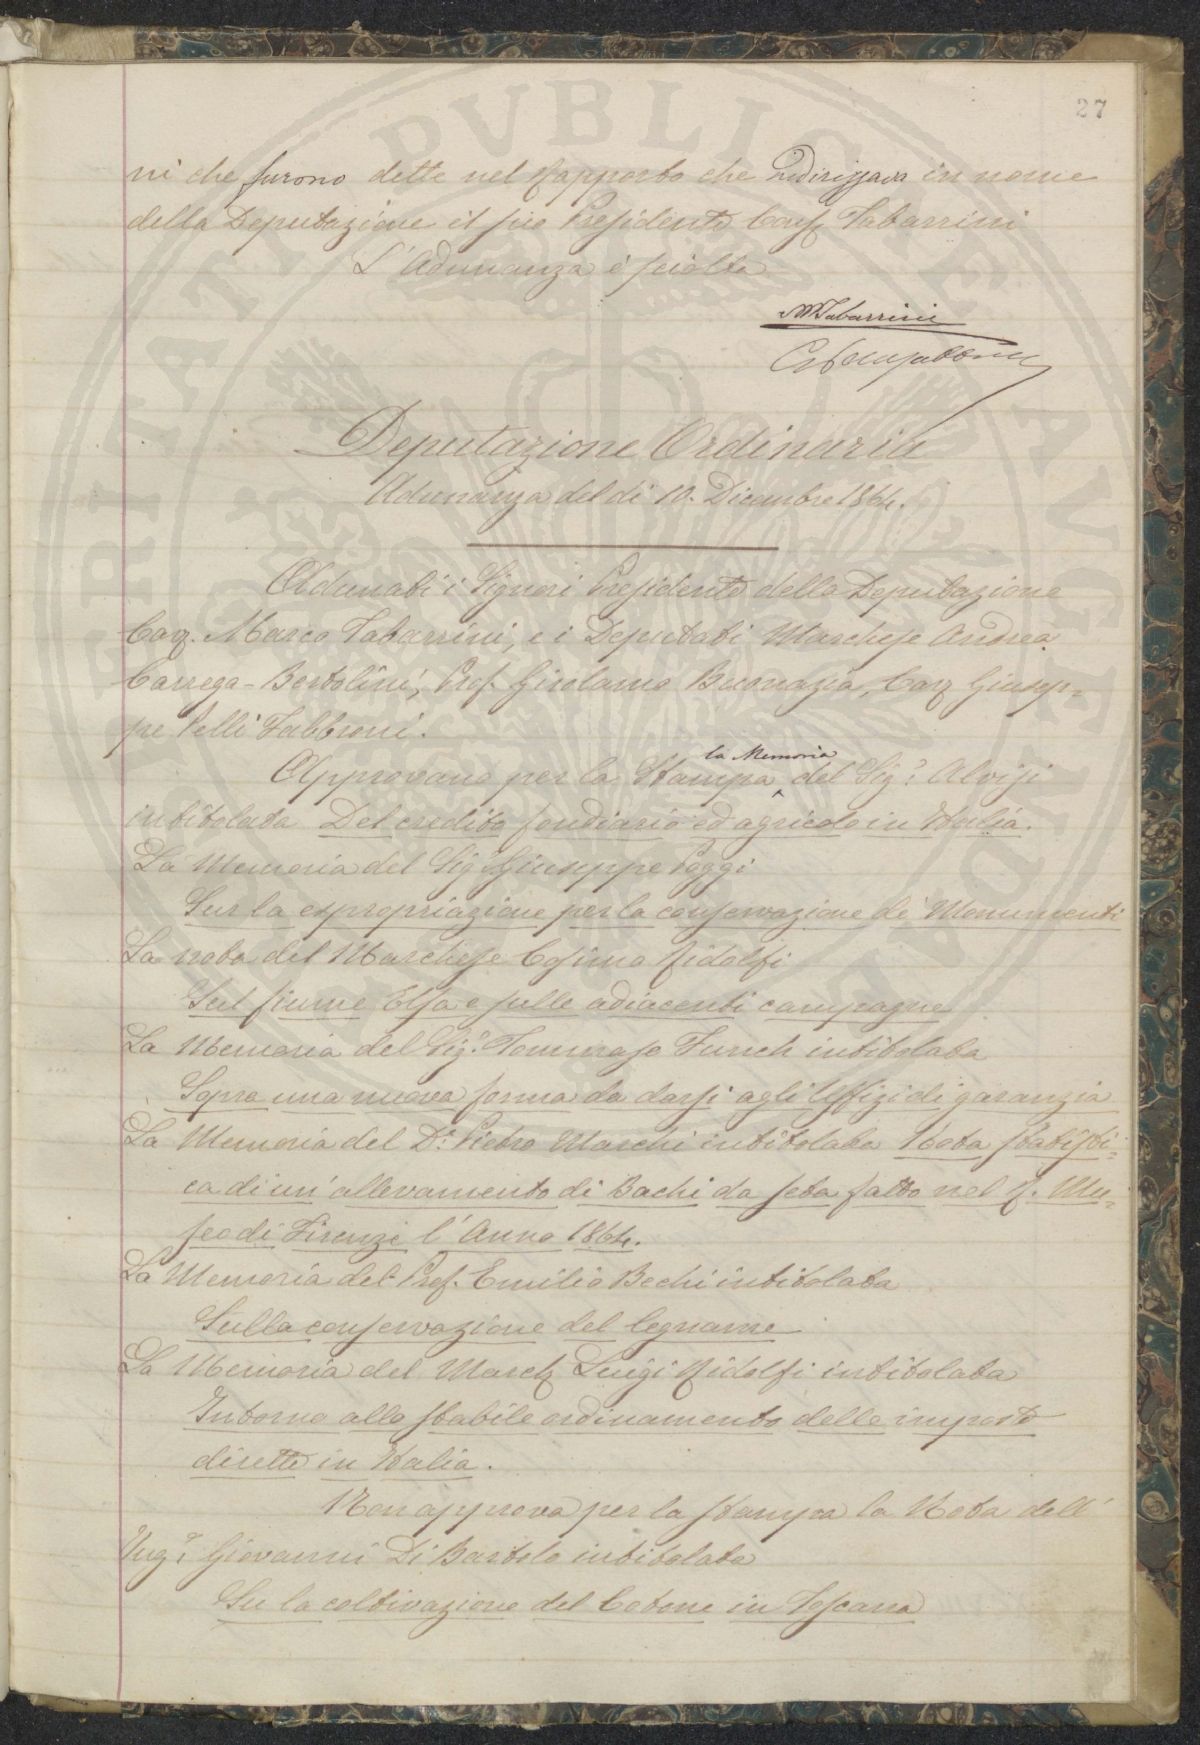 27
ni che furono dette nel Rapporto che indirizzava in nome
della Deputazione il suo Presidente Cav. Tabarrini
L'Adunanza è sciolta
MTabarrini
Deputazione Ordinaria
Adunanza del dì 10. Dicembre 1864.
Adunati i Signori Presidente della Deputazione
Cav. Marco Tabarrini, e i Deputati Marchese Andrea
Carrega-Bertolini, Prof. Girolamo Buonazia, Cav Giusep-
pe Pelli Fabbroni.
la Memoria
Approvano per la Stampa del Sig.r Alvisi
intitolata Del credito fondiario ed agricolo in Italia.
La Memoria del Sig Giuseppe Poggi
Sur la espropriazione per la conservazione de' Monumenti
La nota del Marchese Cosimo Ridolfi
Sul fiume Elsa e sulle adiacenti campagne
La Memoria del Sig.r Tommaso Funch intitolata
Sopra una nuova forma da darsi agli Uffizi di garanzia
La Memoria del D.r Pietro Marchi intitolata Nota statisti-
ca di un' allevamento di Bachi da seta fatto nel R. Mu-
seo di Firenze l'Anno 1864.
La Memoria del Prof. Emilio Bechi intitolata
Sulla conservazione del legname
La Memoria del March Luigi Ridolfi intitolata
Intorno allo stabile ordinamento delle imposte
dirette in Italia.
Non approva per la stampa la Nota dell'
Ing.r Giovanni Di Bartolo intitolata
Su la coltivazione del Cotone in Toscana